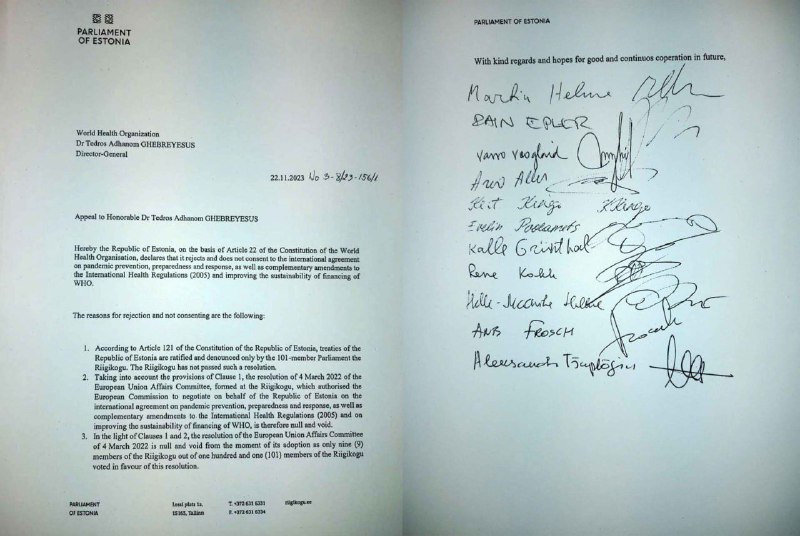 PARLIAMENT
OF ESTONIA
World Health Organization
Dr Tedros Adhanom GHEBREYESUS
Director-General
22.11.2023 No 3-8/23-156/1
Appeal to Honorable Dr Tedros Adhanom GHEBREYESUS
Hereby the Republic of Estonia, on the basis of Article 22 of the Constitution of the World
Health Organisation, declares that it rejects and does not consent to the international agreement
on pandemic prevention, preparedness and response, as well as complementary amendments to
the International Health Regulations (2005) and improving the sustainability of financing of
WHO.
The reasons for rejection and not consenting are the following:
1. According to Article 121 of the Constitution of the Republic of Estonia, treaties of the
Republic of Estonia are ratified and denounced only by the 101-member Parliament the
Riigikogu. The Riigikogu has not passed such a resolution.
2. Taking into account the provisions of Clause 1, the resolution of 4 March 2022 of the
European Union Affairs Committee, formed at the Riigikogu, which authorised the
European Commission to negotiate on behalf of the Republic of Estonia on the
international agreement on pandemic prevention, preparedness and response, as well as
complementary amendments to the International Health Regulations (2005) and on
improving the sustainability of financing of WHO, is therefore null and void.
3. In the light of Clauses 1 and 2, the resolution of the European Union Affairs Committee
of 4 March 2022 is null and void from the moment of its adoption as only nine (9)
members of the Riigikogu out of one hundred and one (101) members of the Riigikogu
voted in favour of this resolution.
PARLIAMENT
OF ESTONIA
Lossi plats 1a,
15165, Tallinn
T. +372 631 6331
F. +372 631 6334
riigikogu.ee
PARLIAMENT OF ESTONIA
With kind regards and hopes for good and continuos coperation in future,
Martin Helme
RAIN EPLER
Varro Vooglaid
Arvo Aller
Kert Kingo Kkingo
Evelin Poolamets
Kalle Grünthal
Rene Kokk
Helle-Moonika Helme
ANTS FROSCH
Aleksandr Tšaplõgin